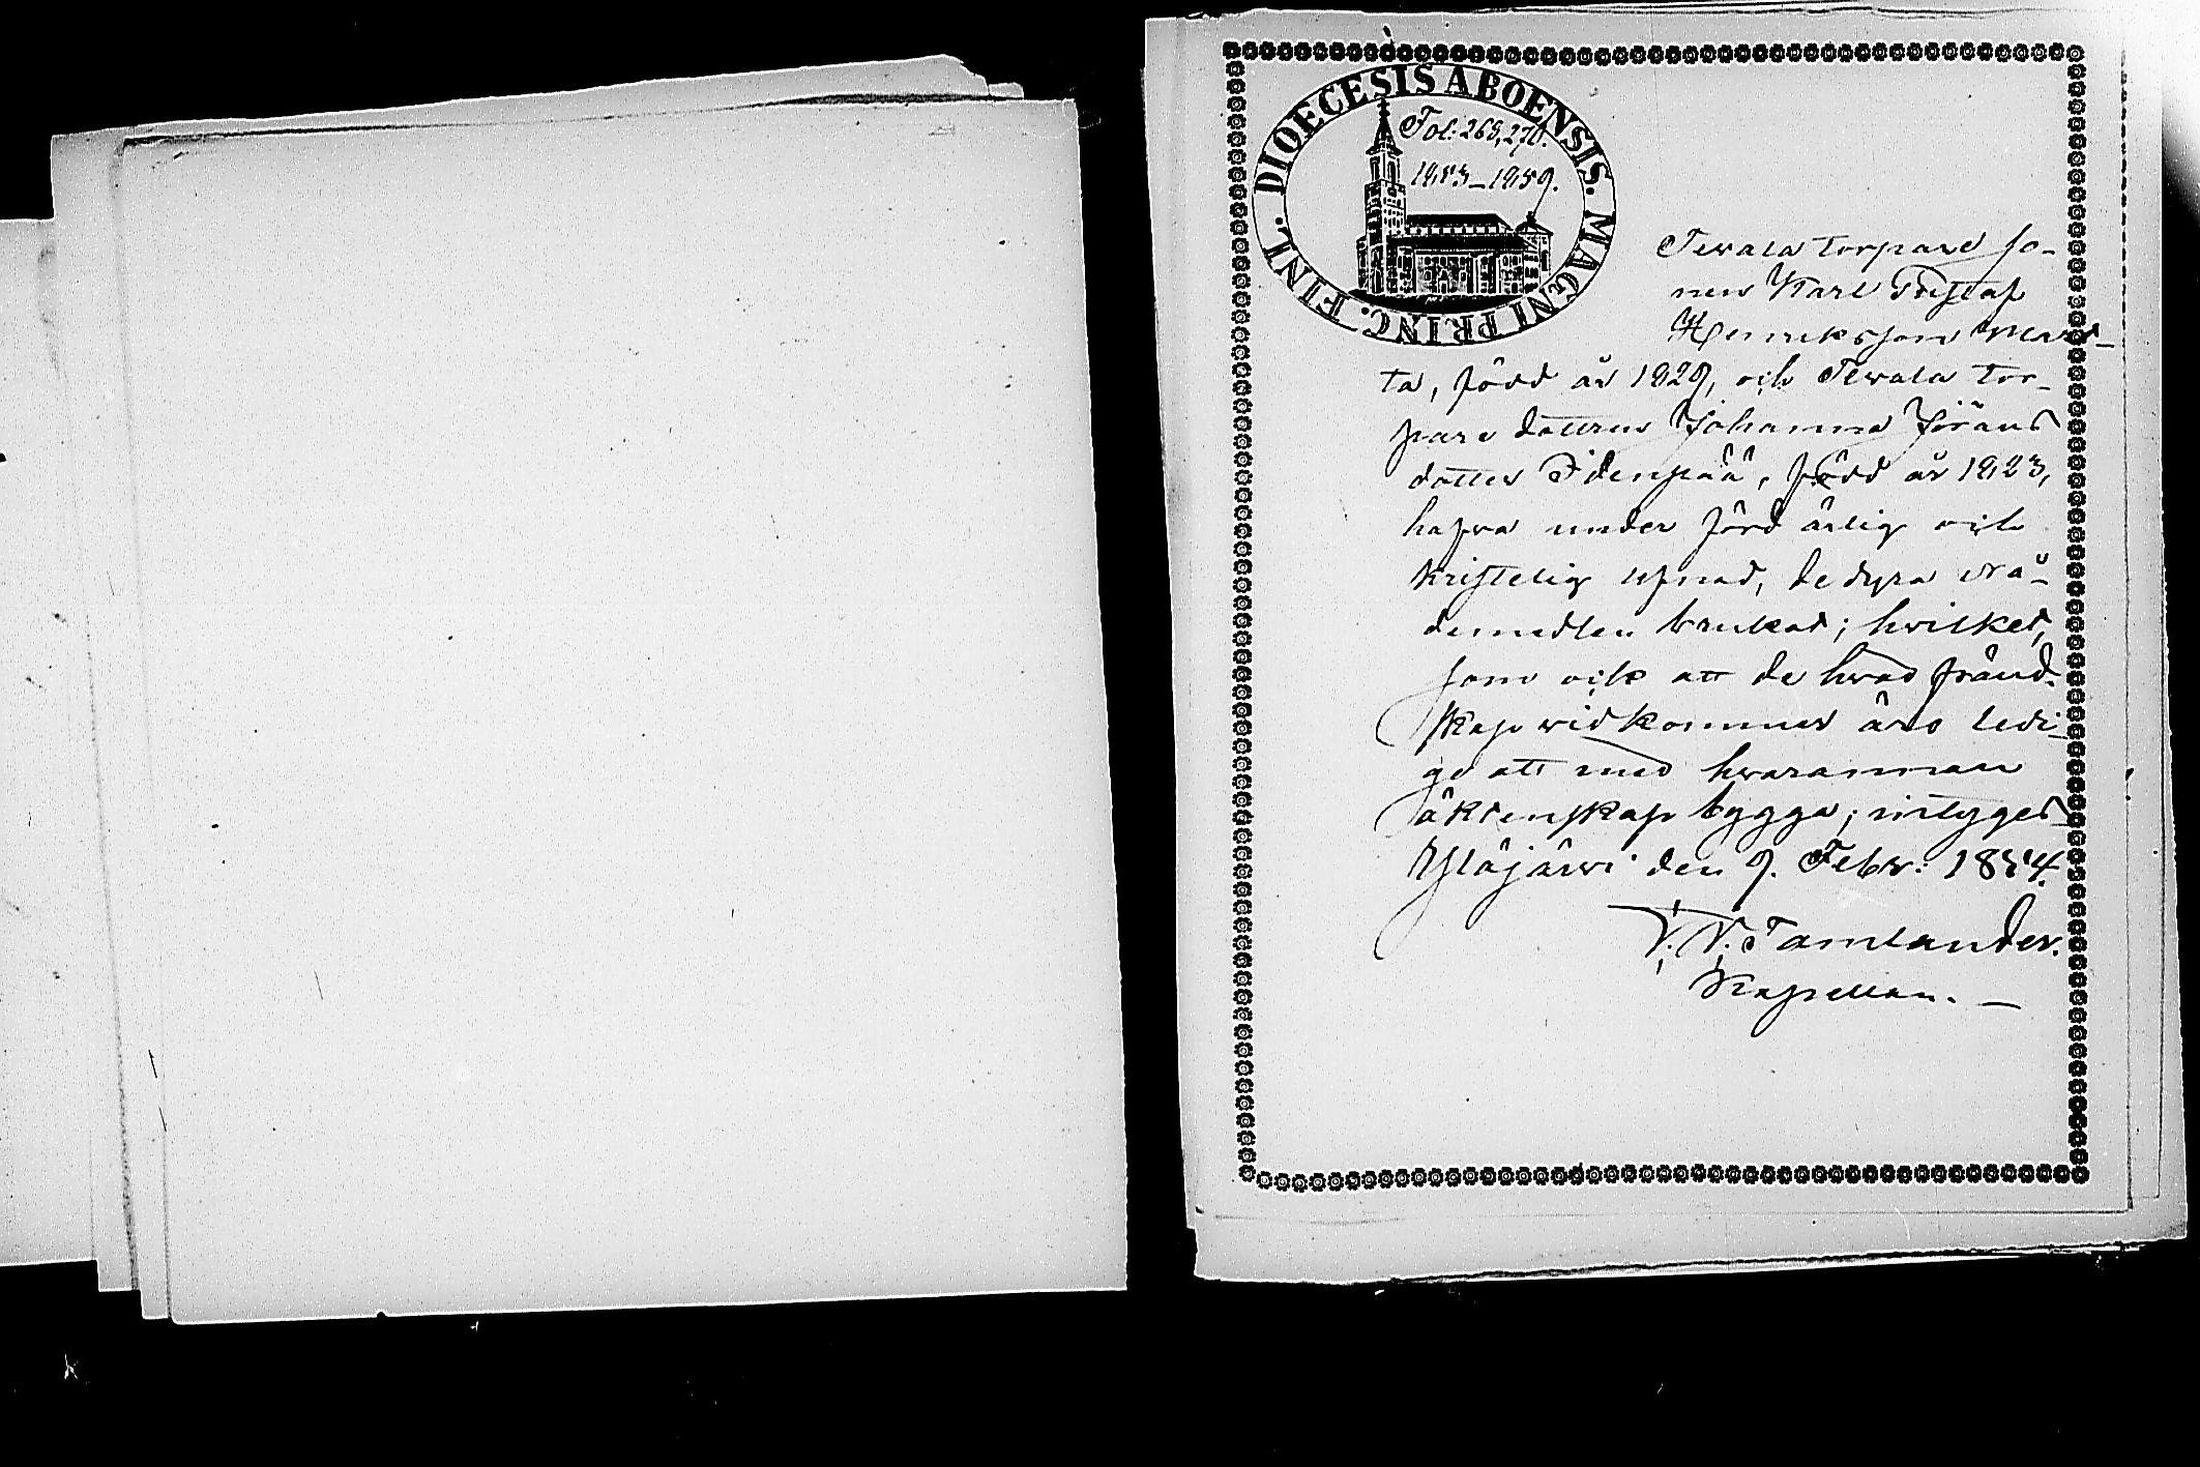 DIOECESIS ABOENSIS. MAGNI PRINC. FINL.
Fol: 269, 270.
1853–1859.
Tevala torpare so-
nen Karl Gustaf
Henriksson
ta, född år 1829, och Tevala tor-
pare dottren Johanna Jörans
dotter Idenpää, född år 1823,
hafva under förd ärlig och
kristelig lefnad, de dyra nå-
demedlen brukat; hvilket,
som ock att de hvad fränd-
skap vidkommer äro ledi-
ga att med hvarannan
äktenskap bygga; intygas
Ylöjärvi den 9. Febr: 1854.
Tamlander.
Kapellan. —